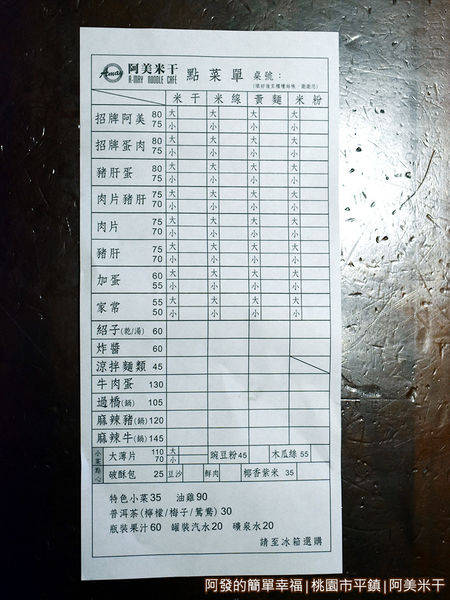 Amay 阿美米干 點菜單 桌號：
A-MAY NOODLE CAFE
米干 米線 黃麵 米粉
招牌阿美 80 大 大 大 大
75 小 小 小 小
招牌蛋肉 80 大 大 大 大
75 小 小 小 小
豬肝蛋 75 大 大 大 大
70 小 小 小 小
肉片豬肝 75 大 大 大 大
70 小 小 小 小
肉片 75 大 大 大 大
70 小 小 小 小
豬肝 75 大 大 大 大
70 小 小 小 小
加蛋 60 大 大 大 大
55 小 小 小 小
家常 55 大 大 大 大
50 小 小 小 小
紹子(乾/湯) 60
炸醬 60
涼拌麵類 45
牛肉蛋 130
過橋(鍋) 105
麻辣豬(鍋) 120
麻辣牛(鍋) 145
小菜點心
大薄片 110 大 豌豆粉 45 木瓜絲 55
70 小
破酥包 25 豆沙 鮮肉 椰香紫米 35
特色小菜35 油雞90
普洱茶(檸檬/梅子/鴛鴦) 30
瓶裝果汁60 罐裝汽水20 礦泉水20
請至冰箱選購
阿發的簡單幸福|桃園市平鎮|阿美米干